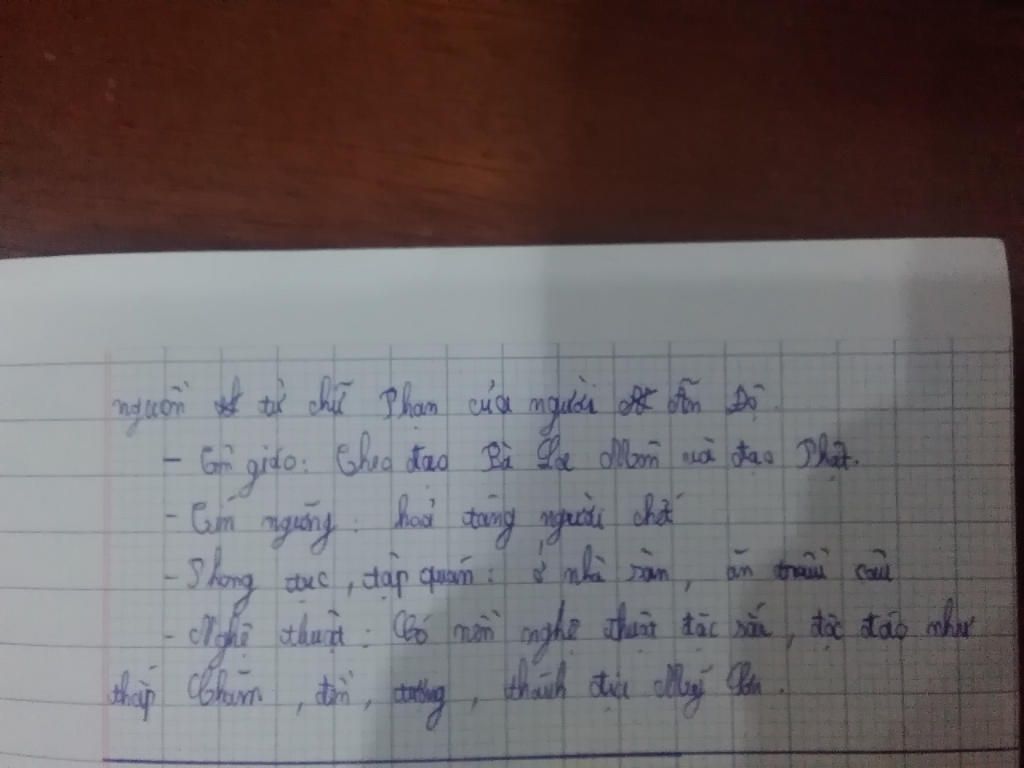 nguồn từ chữ Phạn của người Ấn Độ.
- Tôn giáo: Theo đạo Bà La Môn và đạo Phật.
- Tín ngưỡng: hoả táng người chết
- Phong tục, tập quán: ở nhà sàn, ăn trầu cau
- Nghệ thuật: Có nền nghệ thuật đặc sắc, độc đáo như
tháp Chăm, đền, tượng, thánh địa Mỹ Sơn.